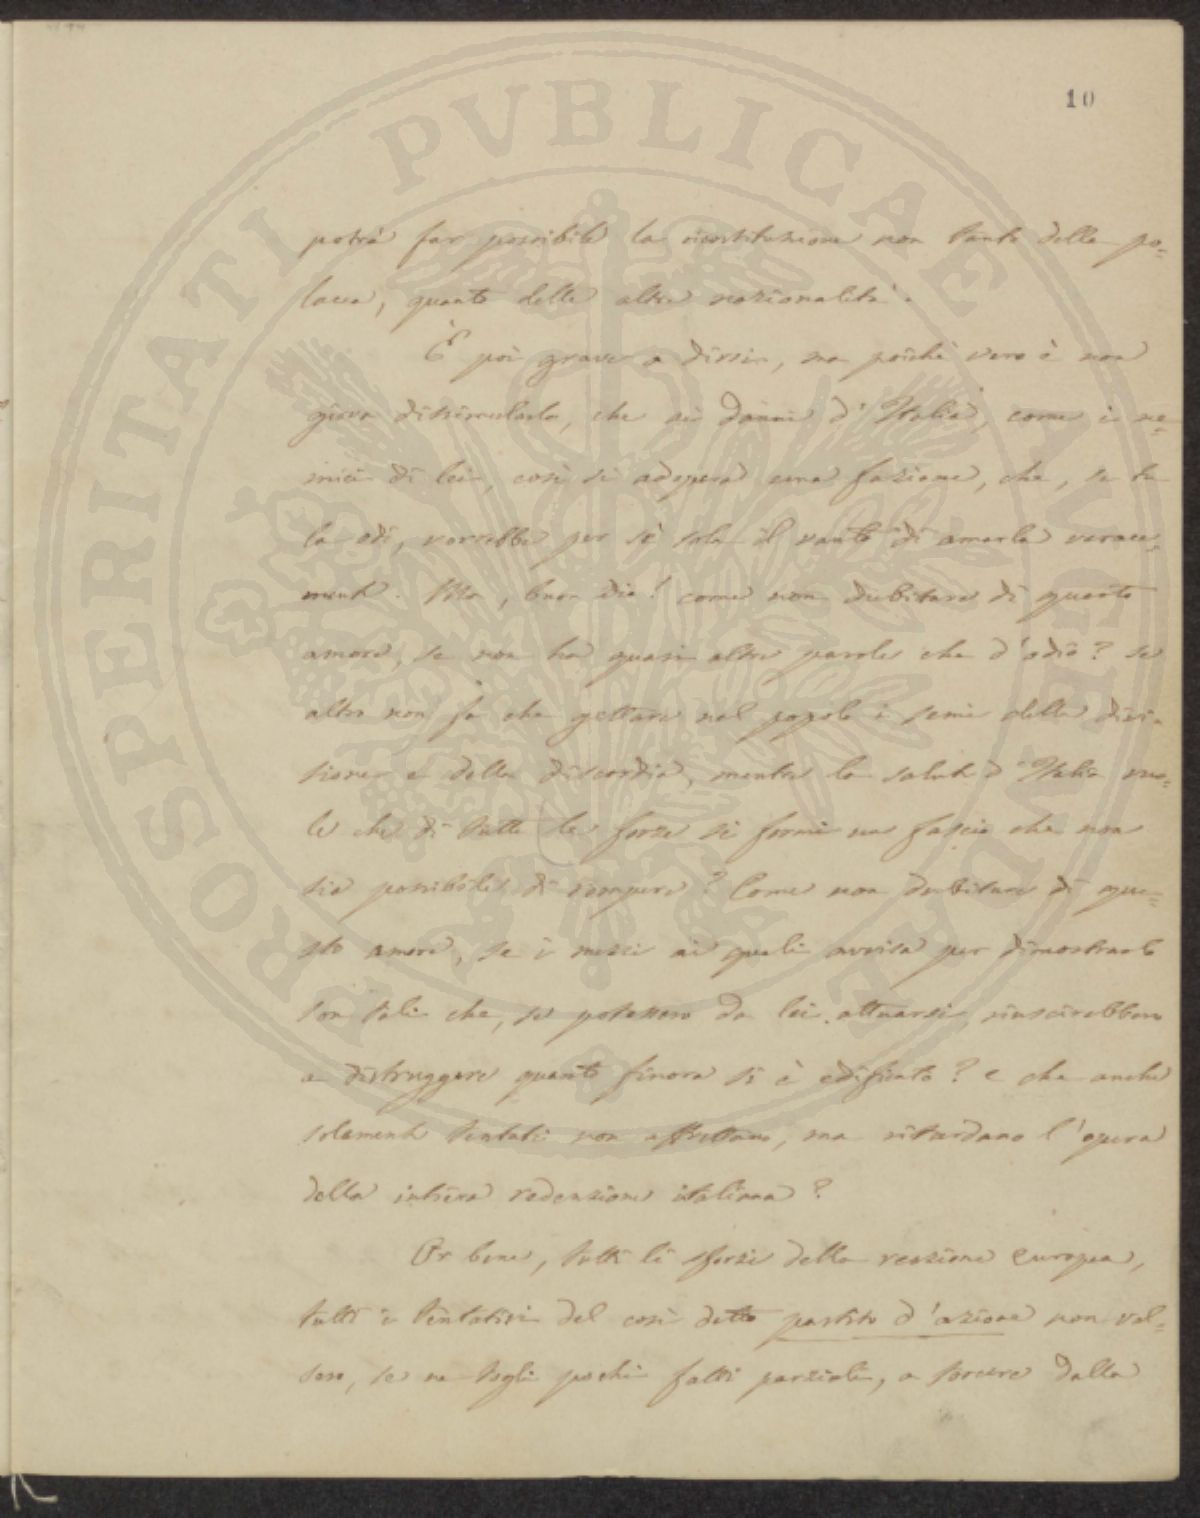 10
potrà far possibile la ricostituzione non tanto della po-
lacca, quanto delle altre nazionalità.
È poi grave a dirsi, ma poichè vero è non
giova dissimularlo, che ai danni d'Italia, come i ne-
mici di lei, così si adopera una fazione, che, se tu
la odi, vorrebbe per sè sola il vanto di amarla verace-
mente. Ma, buon dio! come non dubitare di questo
amore, se non ha quasi altre parole che d'odio? se
altro non fa che gettare nel popolo i semi della divi-
sione e della discordia, mentre la salute d'Italia vuo-
le che di tutte le forze si formi un fascio che non
sia possibile di rompere? Come non dubitare di que-
sto amore, se i mezzi ai quali avvisa per dimostrarlo
son tali che, se potessero da lei attuarsi, riuscirebbero
a distruggere quanto finora si è edificato? e che anche
solamente tentati non affrettano, ma ritardano l'opera
della intiera redenzione italiana?
Or bene, tutti li sforzi della reazione europea,
tutti i tentativi del così detto partito d'azione non val-
sero, se ne togli pochi fatti parziali, a torcere dalla
PROSPERITATI PVBLICAE AVGENDAE